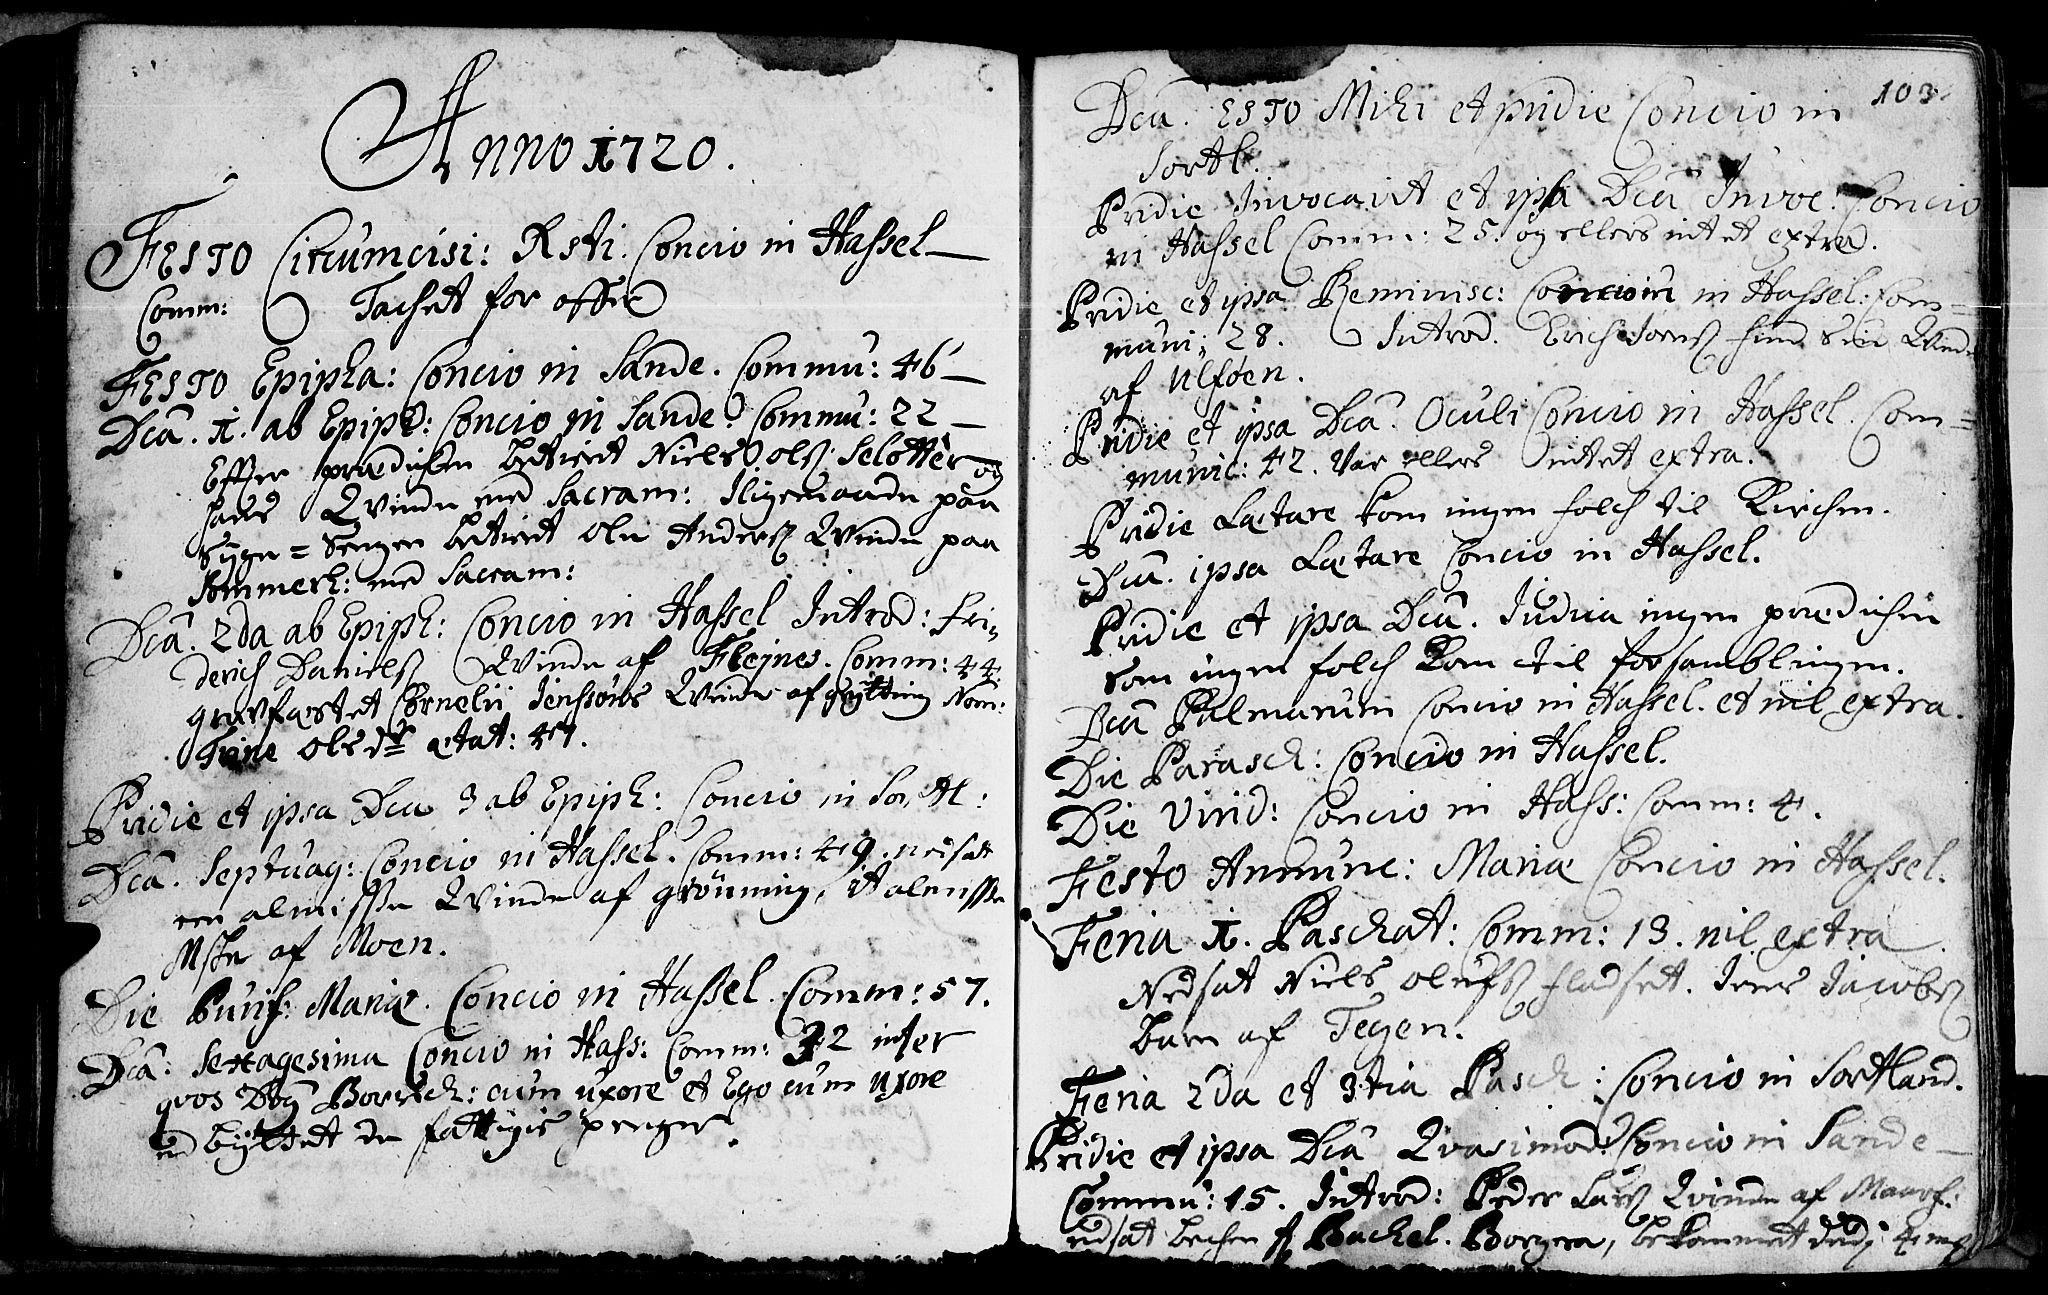 Anno 1720.
FESTO Circumcisi: Xsti. Concio in Hassel
Comm: Tachet for offer
FESTO Epipha: Concio in Sande. Commu: 46
Dcâ. 1. ab Epiph: Concio in Sande. Commu: 22
Efter prædichen betient Niels Ols: Selotter og
hans Qvinde med Sacram: Iligemaade paa
Syge=Sengen betient Ole Anders: Qvinde paa
Sommerh: med Sacram:
Dcâ. 2da ab Epiph: Concio in Hassel Introd: Fri-
derich Daniels: Qvinde af Flejnes. Comm: 44.
gravfæstet Cornelii Jenssøns Qvinde af Nom:
Trine Olsdr ætat: 47.
Pridie et ipsa Dca 3 ab Epiph: Concio in Sortl:
Dcâ. Septuag: Concio in Hassel. Comm: 49. nedsatt
een almisse Qvinde af grönning, it almisse
af Moen.
Die Purif: Mariæ. Concio in Hassel. Comm: 57.
Dcâ: Sexagesima Concio in Hass: Comm: 32 inter
qvos Dn: Borrich: cum uxore et Ego cum uxore
ud byttet de fattigis penger.
103.
Dcâ. ESTO Mihi et pridie Concio in
Sortl.
Pridie Invocavit et ipsa Dcâ Invoc: Concio
in Hassel Comm: 25. og ellers intet extra.
Pridie et ipsa Reminisc: Concio in Hassel: Com=
muni: 28. Introd. Erich Joens: Qvinde
af Ulføen.
Pridie et ipsa Dcâ. Oculi Concio in Hassel. Com=
munic: 42. Var ellers intet extra.
Pridie Lætare kom ingen folch til Kirchen.
Dcâ. ipsa Lætare Concio in Hassel.
Pridie et ipsa Dcâ. Judica ingen prædichen
som ingen folch kom til forsamblingen.
Dcâ Palmarum Concio in Hassel. et nil extra.
Die Parasch: Concio in Hassel.
Die Virid: Concio in Hass: Comm: 4.
Festo Annunc: Mariæ Concio in Hassel.
Feria 1. Paschat: Comm: 13. nil extra
Nedsat Niels Olufs: Fladset. Jens Jacobs:
barn af Tegen.
Feria 2da et 3tia Pasch: Concio in Sortland.
Pridie et ipsa Dcâ Qvasimod: Concio in Sande
Commu: 15. Introd: Peder Lars: Qvinde af